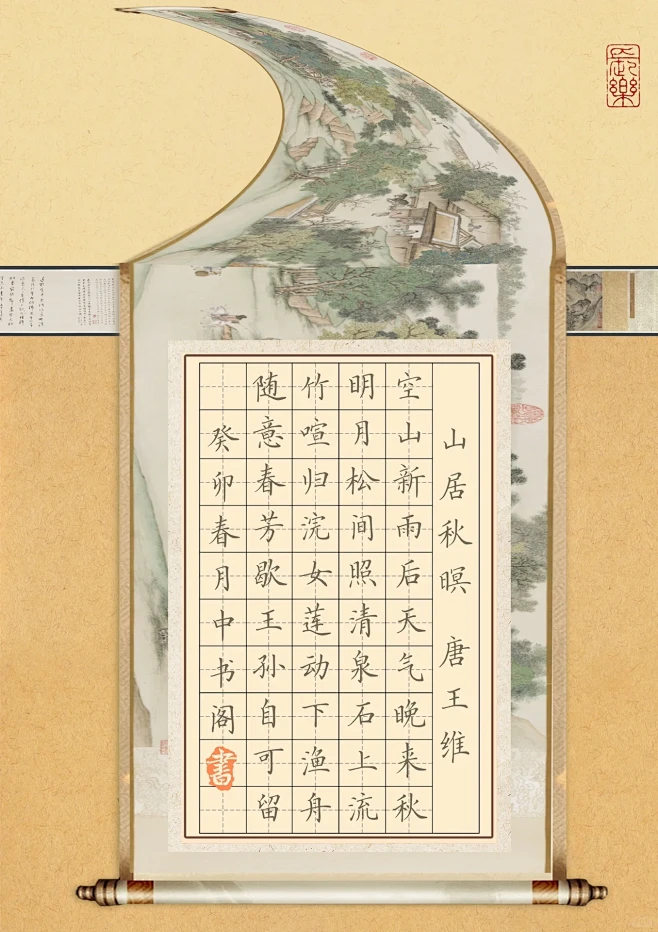 山居秋暝 唐 王维
空山新雨后天气晚来秋
明月松间照清泉石上流
竹喧归浣女莲动下渔舟
随意春芳歇王孙自可留
癸卯春月中书阁
書